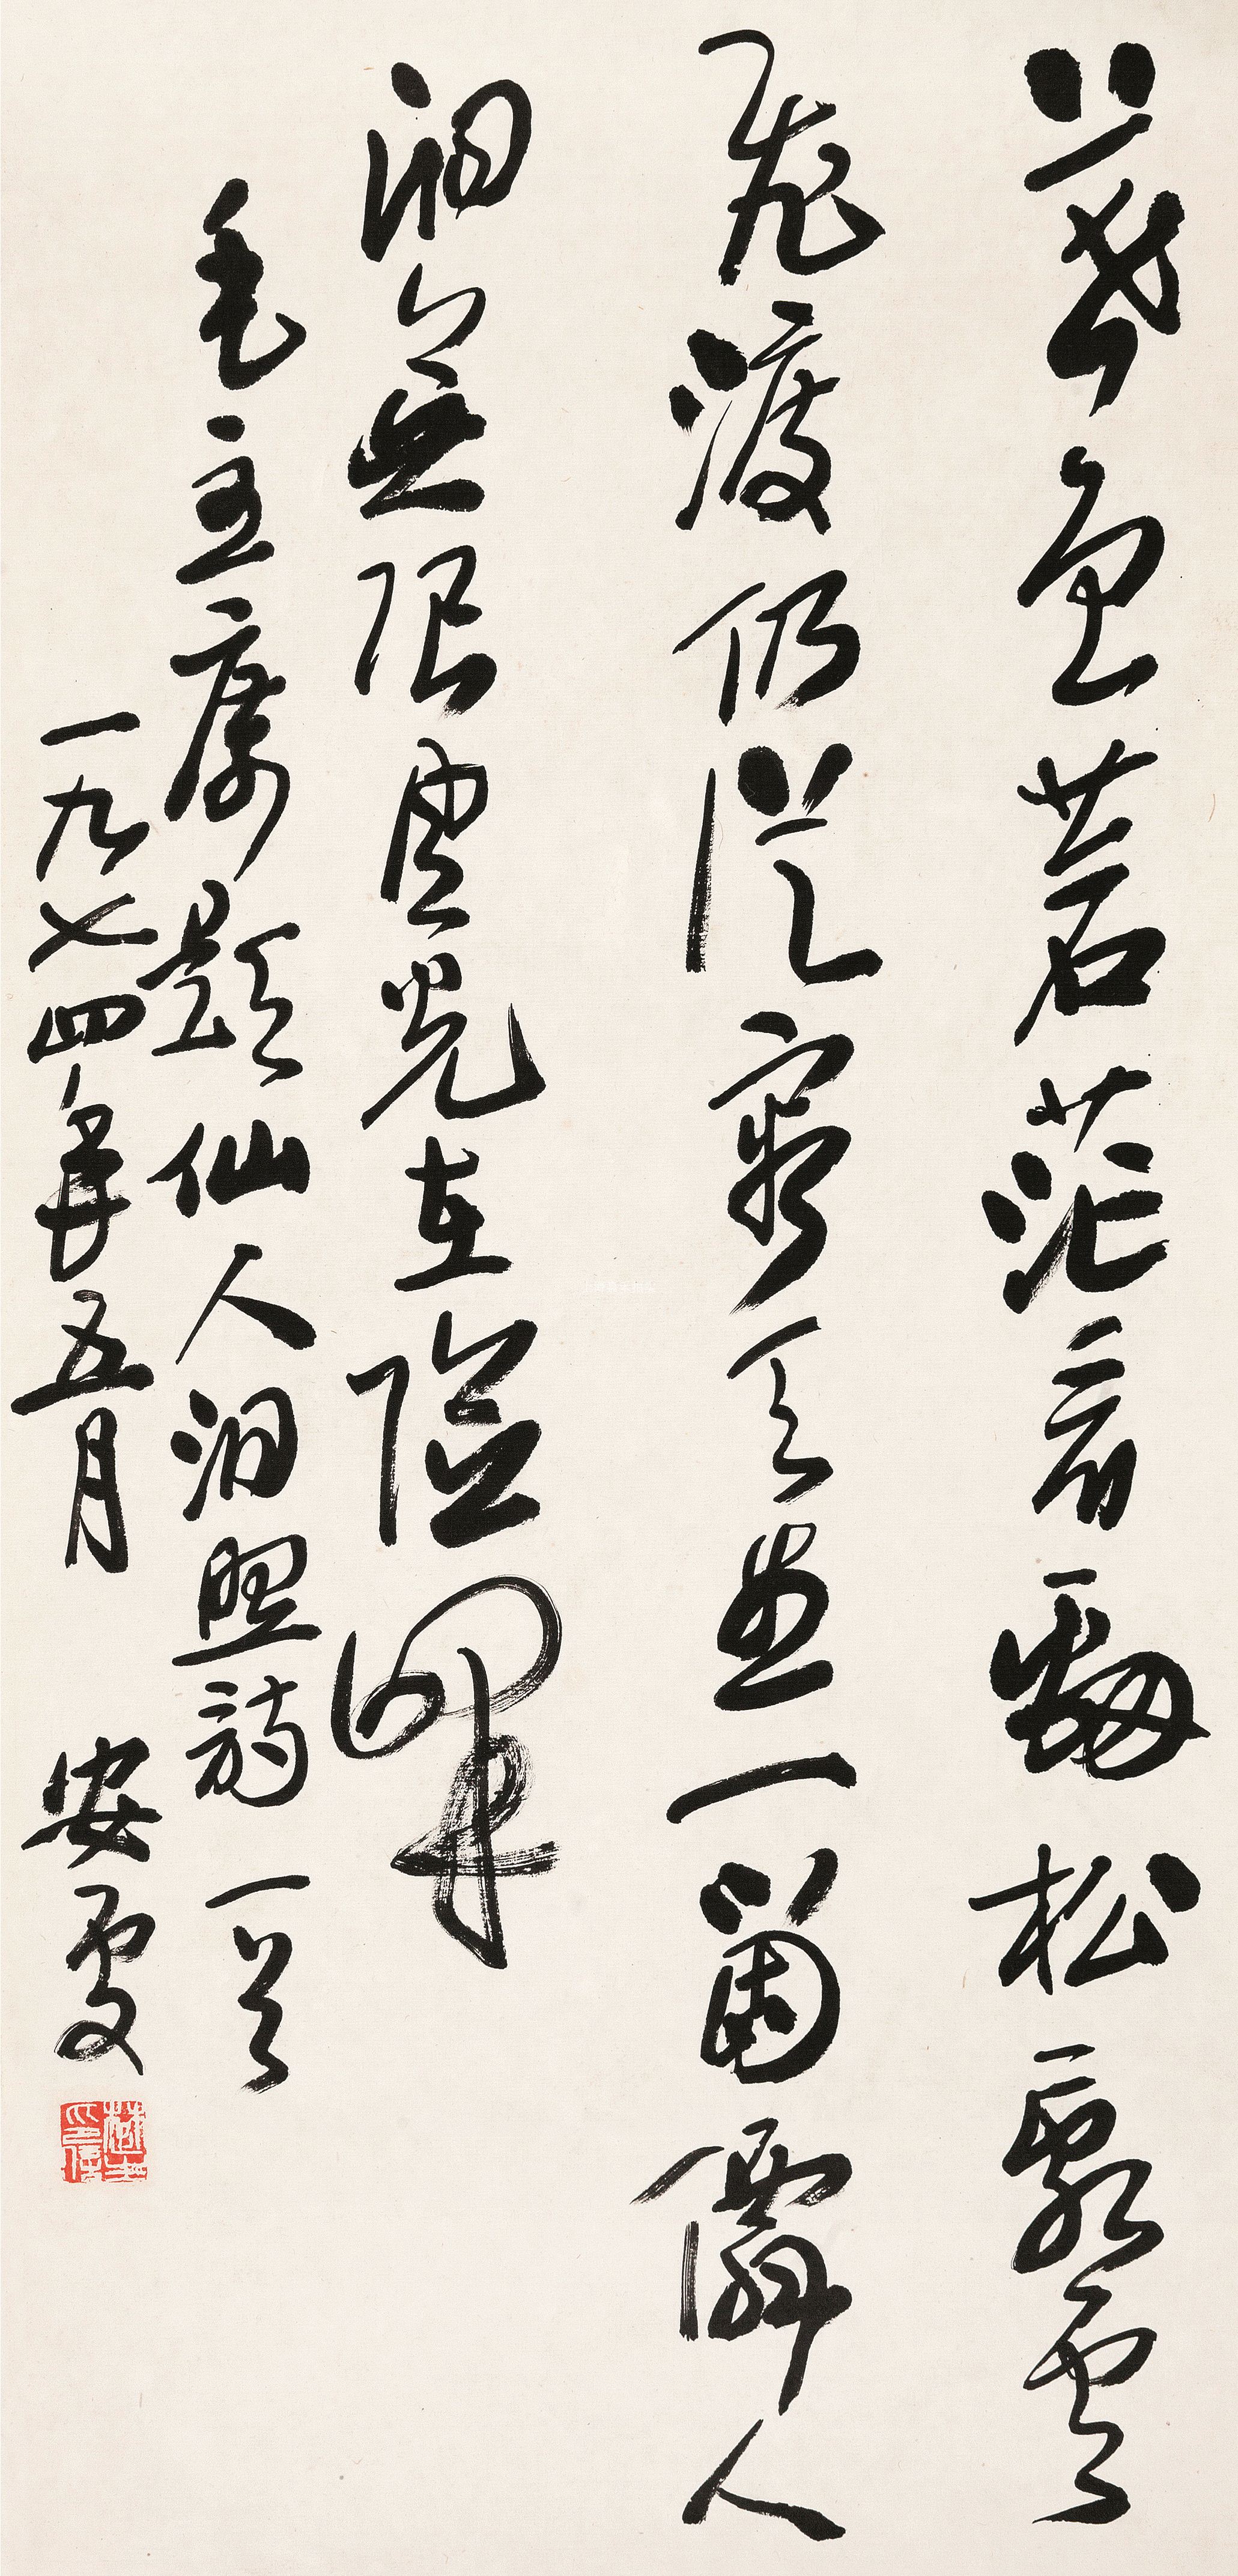 暮色苍茫看劲松乱云
飞渡仍从容天生一个仙人
洞无限风光在险峰
毛主席题仙人洞照诗一首
一九七四年五月 安处